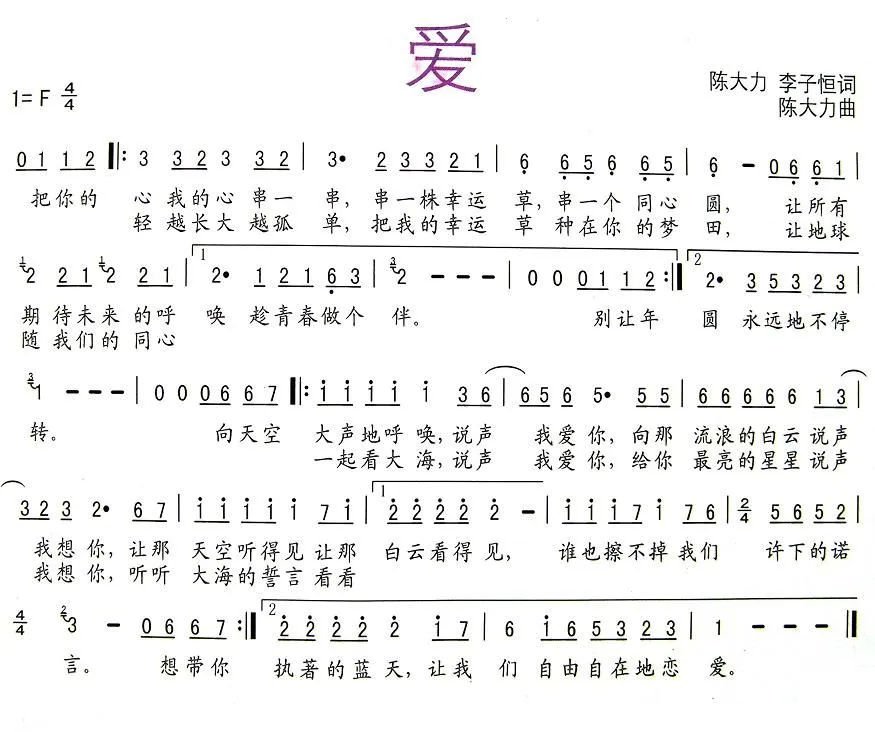 爱
陈大力 李子恒词
1=F 4/4
陈大力曲
0 1 1 2 ‖: 3 3 2 3 3 2 | 3• 2 3 3 2 1 | 6 6 5 6 6 5 | 6 - 0 6 6 1
把你的 心我的心串一 串,串一株幸运 草,串一个同心 圆, 让所有
轻越长大越孤 单,把我的幸运 草 种在你的梦 田,让地球
1 2 2 1 1 2 2 1 | 1 2• 1 2 1 6 3 | 3 2 - - - | 0 0 0 1 1 2 :‖ 2 2• 3 5 3 2 3
期待未来的呼 唤 趁青春做个 伴。 别让年 圆 永远地不停
随我们的同心
3 1 - - - | 0 0 0 6 6 7 ‖: i i i i i 3 6 | 6 5 6 5• 5 5 | 6 6 6 6 6 1 3 |
转。 向天空 大声地呼唤,说声 我爱你,向那 流浪的白云说声
一起看大海,说声 我爱你,给你 最亮的星星说声
3 2 3 2• 6 7 | i i i i i 7 i | 1 2 2 2 2 2 - | i i i 7 i 7 6 | 2/4 5 6 5 2 |
我想你,让那 天空听得见让那 白云看得见, 谁也擦不掉我们 许下的诺
我想你,听听 大海的誓言看看
4/4 2 3 - 0 6 6 7 :‖ 2 2 2 2 2 2 i 7 | 6 i 6 5 3 2 3 | 1 - - - ‖
言。 想带你 执著的蓝天,让我 们 自由自在地恋 爱。